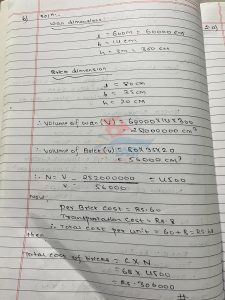 6) Soln:-
Wall dimensions
l = 600m = 60000 cm
b = 14 cm
h = 3m = 300 cm
Brick dimension
l = 80 cm
b = 35 cm
h = 20 cm
∴ Volume of wall (V) = 60000X14X300
= 252000000 cm³
∴ Volume of Brick (v) = 80X35X20
= 56000 cm³
∴ N = V = 252000000 = 4500
v 56000
Now,
Per Brick cost = RS.60
Transportation cost = RS.8
∴ Total cost per unit = 60+8 = RS.68
then
Total cost of bricks = C X N
= 68 X 4500
= RS.306000
#